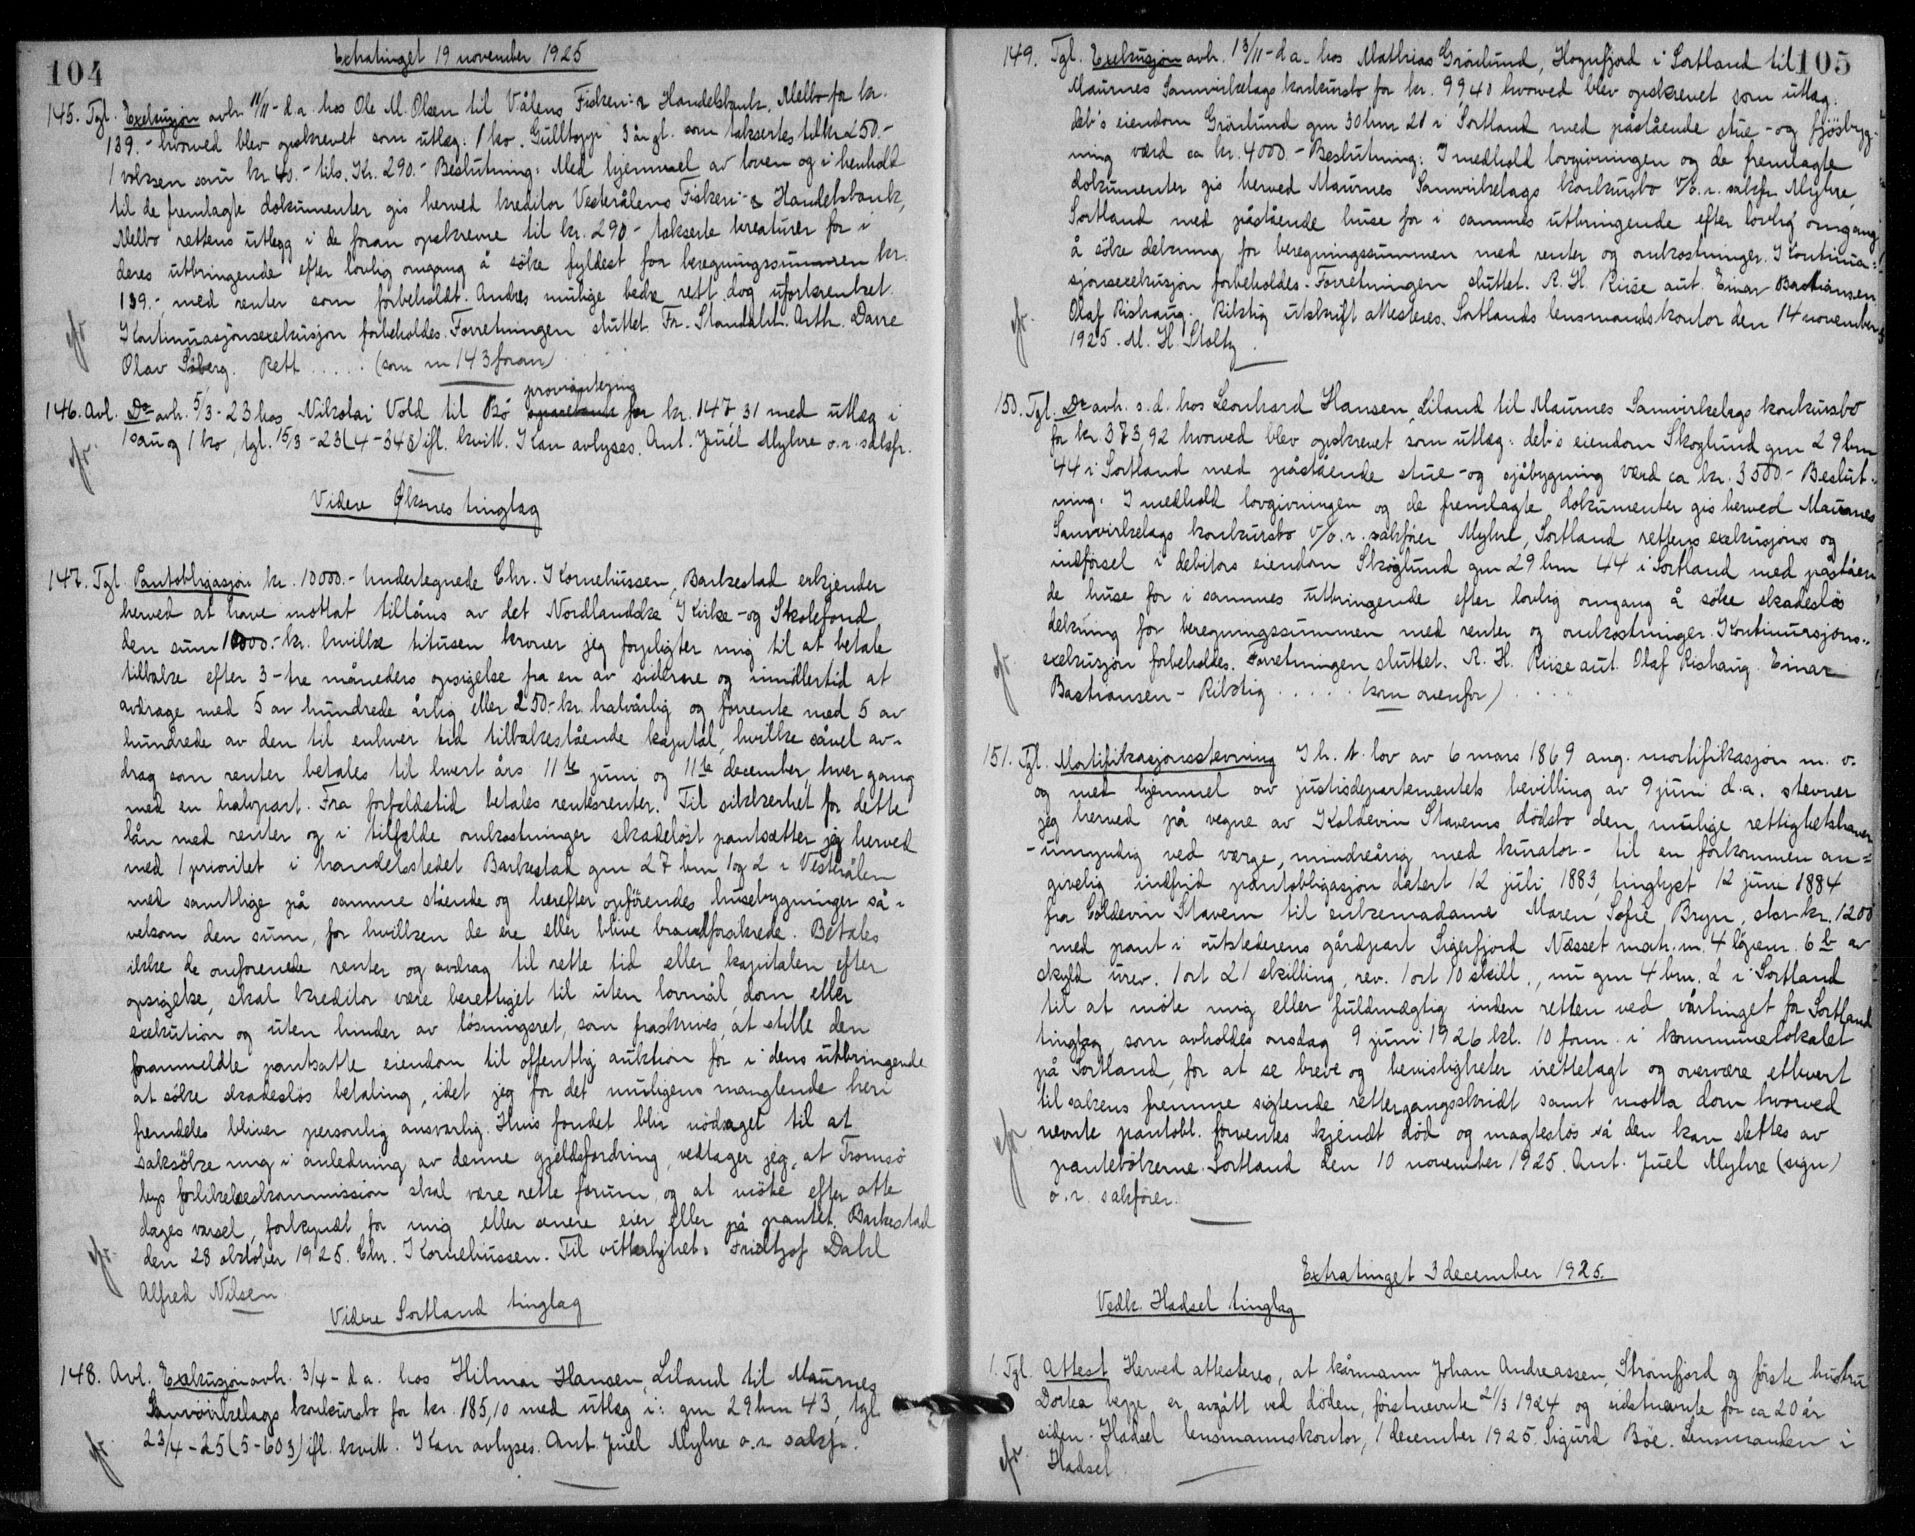 104
Extratinget 19 november 1925
145. Tgl. Exekusjon avh. 11/11 - d.a. hos Ole M. Olsen til V.ålens Fiskeri- & Handelsbank, Melbo for kr.
139.- hvorved blev opskrevet som utlæg: 1 ko. Gulltopp 3 år gl. som takseres til kr. 250.-
1 voksen sau kr. 40.- tils. Kr. 290.- Beslutning: Med hjemmel av loven og i henhold
til de fremlagte dokumenter gis herved kreditor Vesterålens Fiskeri- & Handelsbank,
Melbo rettens utlegg i de foran opskrevne til kr. 290.- takserte kreaturer for i
deres utbringende efter lovlig omgang å söke fyldest for beregningssummen kr.
139.-, med renter som forbeholdt. Andres mulige bedre rett dog uforkrenket.
Kontinuasjonsexekusjon forbeholdes. Forretningen sluttet. Fr. Standahl. Arth. Darre
Olav Söberg. Rett ..... (som nr 143 foran)
146. Avl. Do avh. 5/3 - 23 hos Nikolai Vold til Bö proviantering for kr. 147,31 med utlæg i
1 sau og 1 ko, tgl. 15/3 - 23 (4 - 348) ifl. kvitt. Kan avlyses. Ant. Juel Myhre o.r. sakfr.
Videre Øksnes tinglag
147. Tgl. Pantobligasjon kr. 10000.- Undertegnede Chr. Kornelíussen, Barkestad erkjender
herved at have mottat tillåns av det Nordlandske Kirke- og Skolefond
den sum 10000.- kr. hvilke titusen kroner jeg forpligter mig til at betale
tilbake efter 3 - tre måneders opsigelse fra en av siderne og imidlertid at
avdrage med 5 av hundrede årlig eller 250.- kr. halvårlig og forrente med 5 av
hundrede av den til enhver tid tilbakestående kapital, hvilke såvel av-
drag som renter betales til hvert års 11te juni og 11te december, hver gang
med en halvpart. Fra forfaldstid betales rentesrenter. Til sikkerhet for dette
lån med renter og i tilfælde omkostninger skadeløst pantsætter jeg herved
med 1 prioritet i handelsstedet Barkestad gnr 27 bnr 1 og 2 i Vesterålen
med samtlige på samme stående og herefter opförendes husebygninger så-
velsom den sum, for hvilken de ere eller blive brandforsikrede. Betales
ikke de omforenede renter og avdrag til rette tid eller kapitalen efter
opsigelse, skal kreditor være berettiget til uten lovmål, dom eller
exekution og uten hinder av lösningsret, som fraskrives, at stille den
foranmeldte pantsatte eiendom til offentlig auktion for i dens utbringende
at söke skadeslös betaling, idet jeg for det muligens manglende heri
fremdeles bliver personlig ansvarlig. Hvis fondet blir nödsaget til at
saksöke mig i anledning av denne gjeldsfordring, vedtager jeg, at Tromsö
bys forlikelseskommission skal være rette forum, og at möte efter otte
dages varsel, forkyndt for mig eller senere eier eller på pantet. Barkestad
den 28 oktober 1925. Chr. Kornelíussen. Til vitterlighet: Fridtjof Dahl
Alfred Nilsen
Videre Sortland tinglag
148. Avl. Exekusjon avh. 3/4 - d.a. hos Hilmar Hansen, Liland til Maurnes
Samvirkelags konkursbo for kr. 185,10 med utlæg i: gnr 29 bnr 43, tgl.
23/4 - 25 (5 - 603) ifl. kvitt. Kan avlyses. Ant. Juel Myhre o.r. sakf.
105
149. Tgl. Exekusjon avh. 13/11 - d.a. hos Mathias Grönlund, Hognfjord i Sortland til
Maurnes Samvirkelags konkursbo for kr. 99,40 hvorved blev opskrevet som utlæg:
deb's eiendom Grönlund gnr 30 bnr 21 i Sortland med påstående stue- og fjösbyg-
ning værd ca kr. 4000.- Beslutning: I medhold lovgivningen og de fremlagte
dokumenter gis herved Maurnes Samvirkelags konkursbo v/o.r. sakfr. Myhre,
Sortland med påstående huse for i sammes utbringende efter lovlig omgang
å söke dekning for beregningssummen med renter og omkostninger. Kontinua-
sjonsexekusjon forbeholdes. Forretningen sluttet. R. H. Riise aut. Einar Bastiansen
Olaf Rishaug. Riktig utskrift attesteres. Sortlands lensmandskontor den 14 november
1925. M. H. Stoltz.
150. Tgl. Do avh. s.d. hos Leonhard Hansen, Liland til Maurnes Samvirkelags konkursbo
for kr. 373,92 hvorved blev opskrevet som utlæg: deb's eiendom Skoglund gnr 29 bnr
44 i Sortland med påstående stue- og sjåbygning værd ca kr. 3500.- Beslut-
ning: I medhold lovgivningen og de fremlagte dokumenter gis herved Maurnes
Samvirkelags konkursbo v/o.r. sakförer Myhre, Sortland rettens exekusjons og
indförsel i debitors eiendom Skoglund gnr 29 bnr 44 i Sortland med påståen
de huse for i sammes utbringende efter lovlig omgang å söke skadeslös
dekning for beregningssummen med renter og omkostninger. Kontinuasjons-
exekusjon forbeholdes. Forretningen sluttet. R. H. Riise aut. Olaf Rishaug. Einar
Bastiansen - Riktig ..... (som ovenfor) .....
151. Tgl. Mortifikasjonsstevning I h. t. lov av 6 mars 1869 ang. mortifikasjon m.v.
og med hjemmel av justisdepartementets bevilling av 9 juni d.a. stevner
jeg herved på vegne av Koldevin Stavems dödsbo den mulige rettighetshaver
- umyndig ved værge, mindreårig med kurator - til en forkommen an-
givelig indfrid pantobligasjon datert 12 juli 1883, tinglyst 12 juni 1884
fra Coldevin Stavem til enkemadame Maren Sofie Bryn, stor kr. 1200
med pant i utstederens gårdpart Sigerfjord Næsset matr. nr. 4 löpenr. 6 b av
skyld urev. 1 ort 21 skilling, rev. 1 ort 10 skill., nu gnr 4 bnr. 2 i Sortland
til at möte mig eller fuldmægtig inden retten ved vårtinget for Sortland
tinglag, som avholdes onsdag 9 juni 1926 kl. 10 form. i kommunelokalet
på Sortland, for at se breve og bevisligheter irettelagt og overvære ethvert
til sakens fremme sigtende rettergangsskridt samt motta dom hvorved
nevnte pantobl. forventes kjendt död og magteslös så den kan slettes av
pantebökerne. Sortland den 10 november 1925. Ant. Juel Myhre (sign)
o.r. sakförer.
Extratinget 3 december 1925.
Vedk. Hadsel tinglag
1. Tgl. Attest Herved attesteres, at kårmann Johan Andreassen, Strömfjord og förste hustru
Dorka begge er avgått ved döden, förstnevnte 21/3 1924 og sidstnævnte for ca 20 år
siden. Hadsel lensmannskontor, 1 december 1925. Sigurd Böe. Lensmanden i
Hadsel